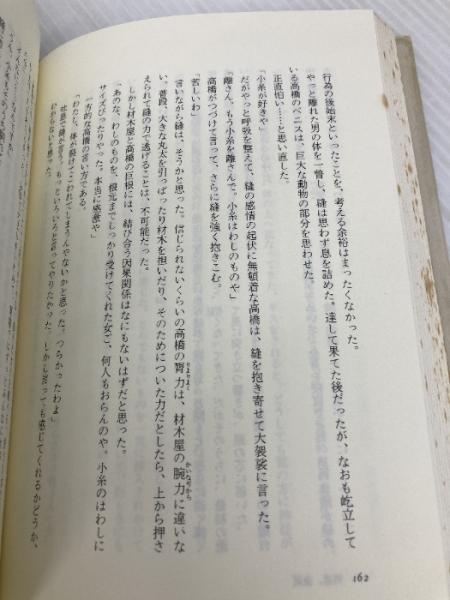 行為の後始末といったことを、考える余裕はまったくなかった。
やっと離れた男の体を一瞥し、縫は思わず息を詰めた。達して果てた後だったが、なおも屹立して
いる高橋のペニスは、巨大な動物の部分を思わせた。
正直怕い……と思い直した。
「小糸が好きや」
だがやっと呼吸を整えて、縫の感情の起伏に無頓着な高橋は、縫を抱き寄せて大袈裟に言った。
「離さん。もう小糸を離さんで。小糸はわしのものや」
高橋がつづけて言って、さらに縫を強く抱きこむ。
「苦しいわ」
言いながら縫は、そうかと思った。信じられないくらいの高橋の膂力は、材木屋の腕力に違いな
い。普段、大きな丸太を引っぱったり材木を担いだり、そのためについた力だとしたら、上から押さ
えられて縫の力で逃げることは、不可能だった。
しかし材木屋と高橋の巨根には、結び合う因果関係はなにもないはずだと思った。
「あのな、わしのものを、根元までしっかり受けてくれた女ご、何人もおらんのや。小糸のはわしに
サイズぴったりや。本当に感激や」
一方的な高橋の言い方である。
「わたし、体が裂けてこわれてしまうんやないかと思った。つらかったわよ」
で縫が言う。もっといろいろと言ってやりたかった。しかし言っても感じてくれるかどうか、
わからないと思った。
162